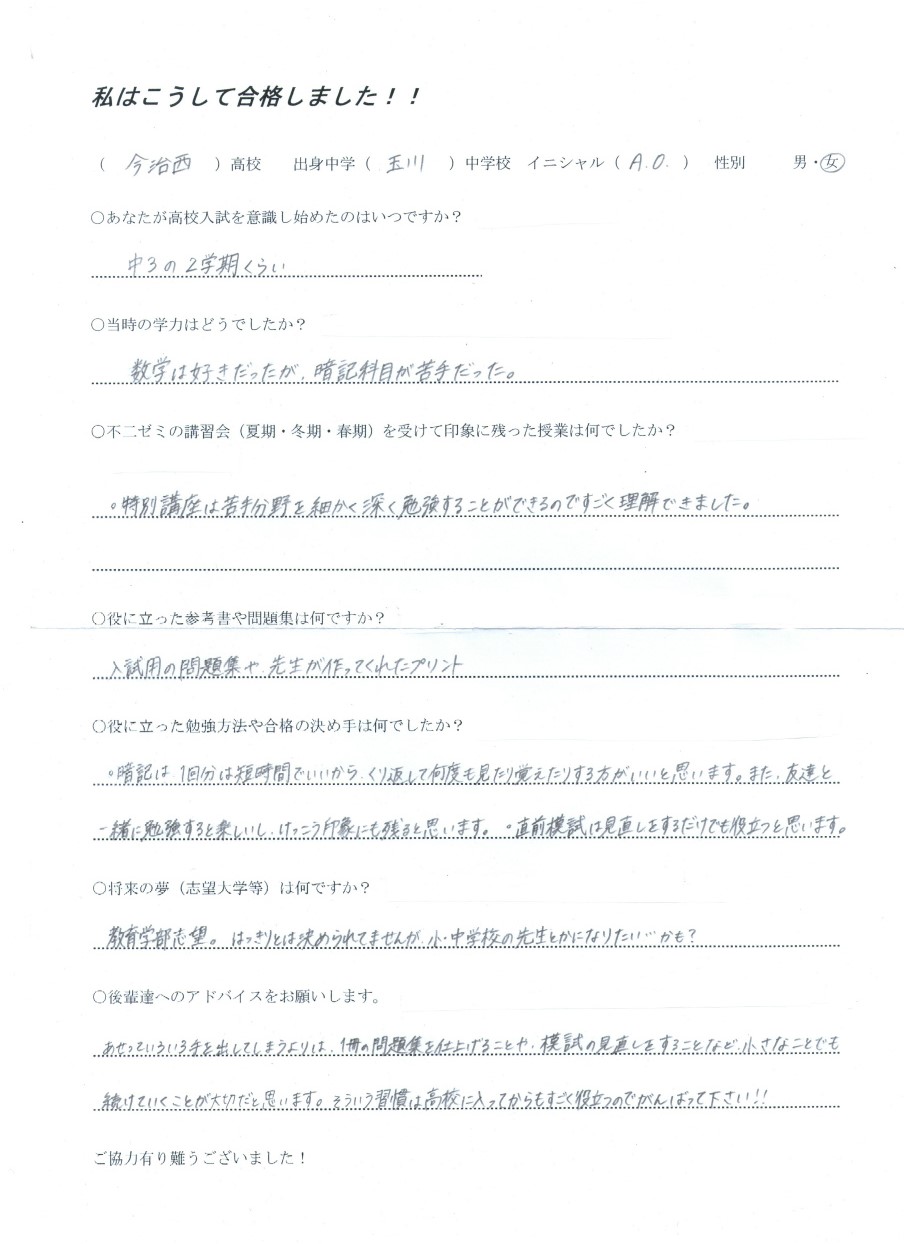 私はこうして合格しました！！
（ 今治西 ）高校 出身中学（ 玉川 ）中学校 イニシャル（ A.O. ） 性別 男・女
○あなたが高校入試を意識し始めたのはいつですか？
中3の2学期くらい
○当時の学力はどうでしたか？
数学は好きだったが、暗記科目が苦手だった。
○不二ゼミの講習会（夏期・冬期・春期）を受けて印象に残った授業は何でしたか？
。特別講座は苦手分野を細かく深く勉強することができるのですごく理解できました。
○役に立った参考書や問題集は何ですか？
入試用の問題集や、先生が作ってくれたプリント
○役に立った勉強方法や合格の決め手は何でしたか？
。暗記は、1回分は短時間でいいから、くり返して何度も見たり覚えたりする方がいいと思います。また、友達と
一緒に勉強すると楽しいし、けっこう印象にも残ると思います。 。直前模試は見直しをするだけでも役立つと思います。
○将来の夢（志望大学等）は何ですか？
教育学部志望。はっきりとは決められてませんが、小・中学校の先生とかになりたい…かも？
○後輩達へのアドバイスをお願いします。
あせっていろいろ手を出してしまうよりは、1冊の問題集を仕上げることや、模試の見直しをすることなど、小さなことでも
続けていくことが大切だと思います。そういう習慣は高校に入ってからもすごく役立つのでがんばって下さい!!
ご協力有り難うございました！